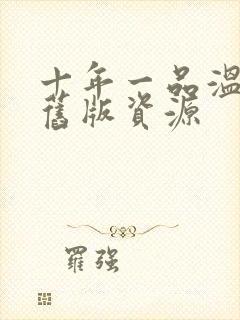 十年一品温
旧版資源
羅強